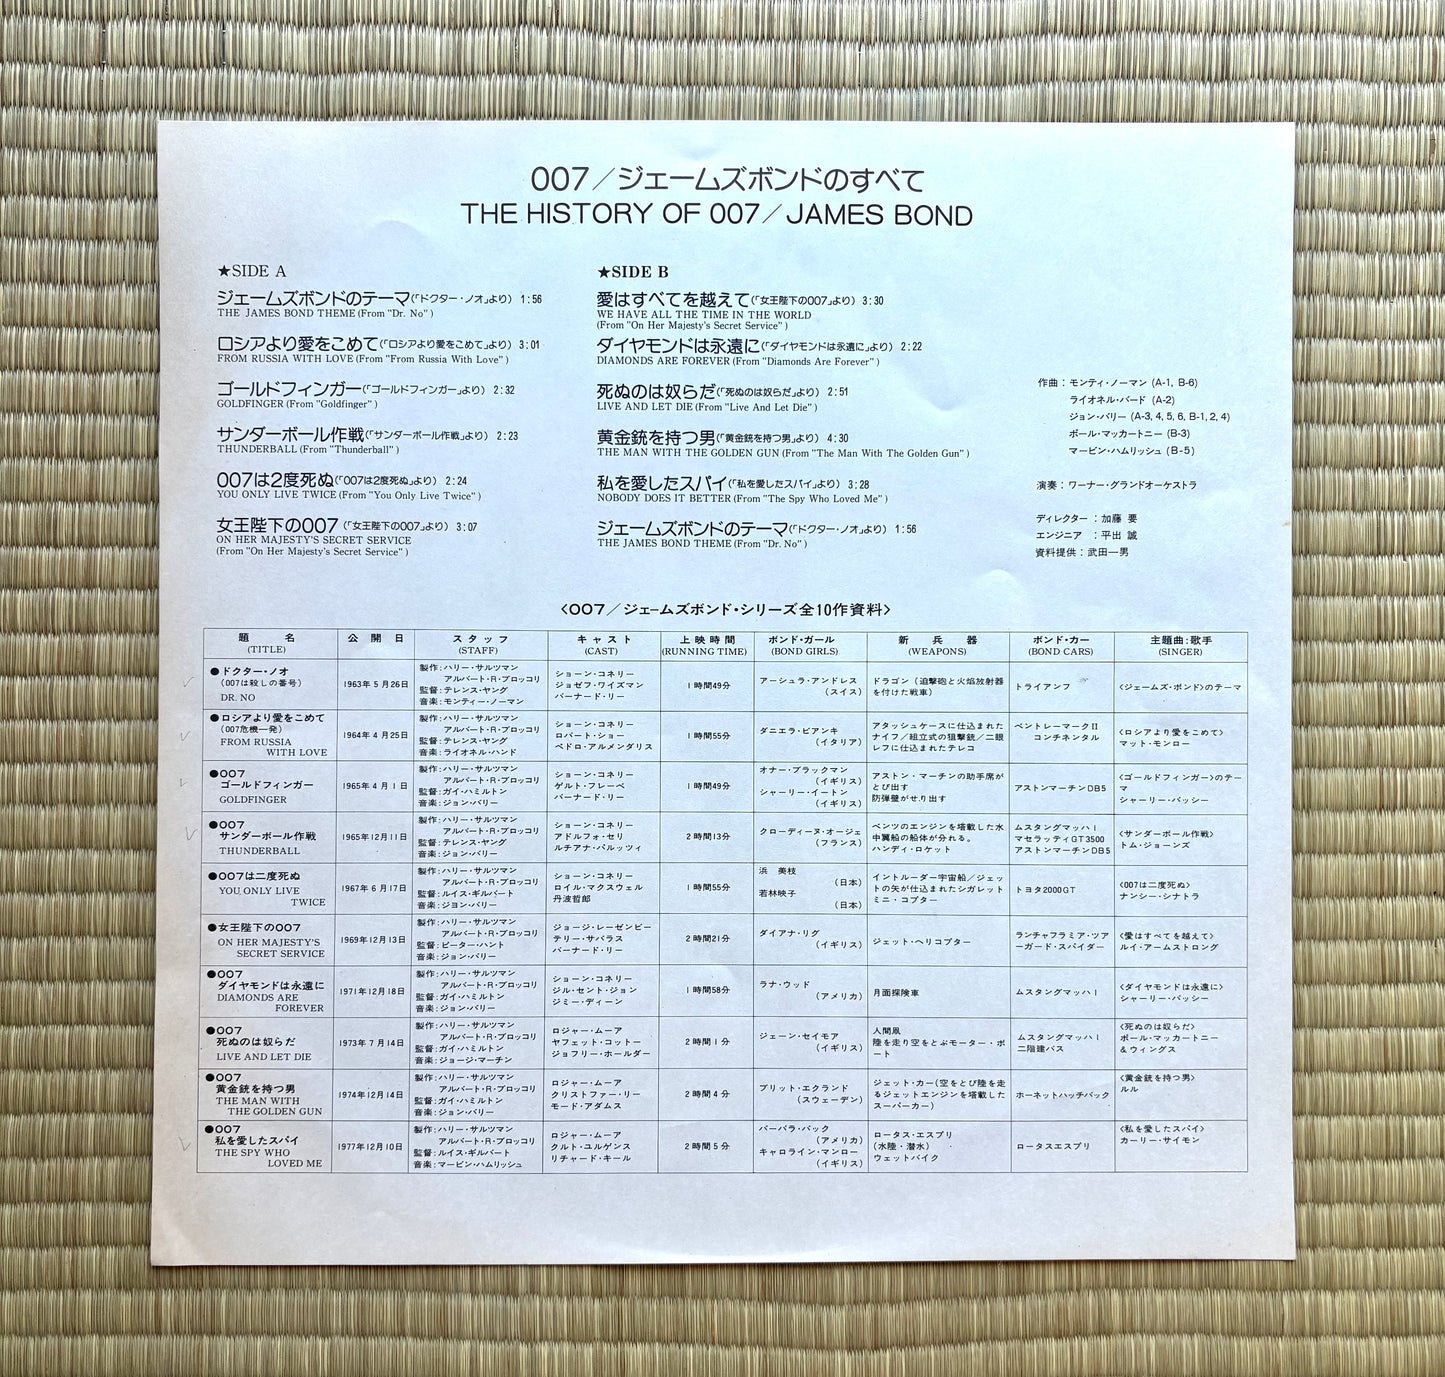 007／ジェームズボンドのすべて
THE HISTORY OF 007／JAMES BOND
★SIDE A
ジェームズボンドのテーマ(「ドクター・ノオ」より) 1:56
THE JAMES BOND THEME (From "Dr. No")
ロシアより愛をこめて(「ロシアより愛をこめて」より) 3:01
FROM RUSSIA WITH LOVE (From "From Russia With Love")
ゴールドフィンガー(「ゴールドフィンガー」より) 2:32
GOLDFINGER (From "Goldfinger")
サンダーボール作戦(「サンダーボール作戦」より) 2:23
THUNDERBALL (From "Thunderball")
007は2度死ぬ(「007は2度死ぬ」より) 2:24
YOU ONLY LIVE TWICE (From "You Only Live Twice")
女王陛下の007 (「女王陛下の007」より) 3:07
ON HER MAJESTY'S SECRET SERVICE
(From "On Her Majesty's Secret Service")
★SIDE B
愛はすべてを越えて(「女王陛下の007」より) 3:30
WE HAVE ALL THE TIME IN THE WORLD
(From "On Her Majesty's Secret Service")
ダイヤモンドは永遠に(「ダイヤモンドは永遠に」より) 2:22
DIAMONDS ARE FOREVER (From "Diamonds Are Forever")
死ぬのは奴らだ(「死ぬのは奴らだ」より) 2:51
LIVE AND LET DIE (From "Live And Let Die")
黄金銃を持つ男(「黄金銃を持つ男」より) 4:30
THE MAN WITH THE GOLDEN GUN (From "The Man With The Golden Gun")
私を愛したスパイ(「私を愛したスパイ」より) 3:28
NOBODY DOES IT BETTER (From "The Spy Who Loved Me")
ジェームズボンドのテーマ(「ドクター・ノオ」より) 1:56
THE JAMES BOND THEME (From "Dr. No")
作曲：モンティ・ノーマン (A-1, B-6)
ライオネル・バード (A-2)
ジョン・バリー (A-3, 4, 5, 6, B-1, 2, 4)
ポール・マッカートニー (B-3)
マービン・ハムリッシュ (B-5)
演奏：ワーナー・グランドオーケストラ
ディレクター：加藤 要
エンジニア ：平出 誠
資料提供：武田一男
〈007／ジェームズボンド・シリーズ全10作資料〉
題 名 公 開 日 スタッフ キャスト 上映時間 ボンド・ガール 新 兵 器 ボンド・カー 主題曲：歌手
(TITLE) (STAFF) (CAST) (RUNNING TIME) (BOND GIRLS) (WEAPONS) (BOND CARS) (SINGER)
●ドクター・ノオ
(007は殺しの番号)
DR. NO
1963年5月26日
製作：ハリー・サルツマン
アルバート・R・ブロッコリ
監督：テレンス・ヤング
音楽：モンティー・ノーマン
ショーン・コネリー
ジョゼフ・ワイズマン
バーナード・リー
1時間49分
アーシュラ・アンドレス
(スイス)
ドラゴン（迫撃砲と火焔放射器
を付けた戦車）
トライアンフ
〈ジェームズ・ボンド〉のテーマ
●ロシアより愛をこめて
(007危機一発)
FROM RUSSIA
WITH LOVE
1964年4月25日
製作：ハリー・サルツマン
アルバート・R・ブロッコリ
監督：テレンス・ヤング
音楽：ライオネル・ハンド
ショーン・コネリー
ロバート・ショー
ペドロ・アルメンダリス
1時間55分
ダニエラ・ビアンキ
(イタリア)
アタッシュケースに仕込まれた
ナイフ／組立式の狙撃銃／二眼
レフに仕込まれたテレコ
ベントレーマークII
コンチネンタル
〈ロシアより愛をこめて〉
マット・モンロー
●007
ゴールドフィンガー
GOLDFINGER
1965年4月1日
製作：ハリー・サルツマン
アルバート・R・ブロッコリ
監督：ガイ・ハミルトン
音楽：ジョン・バリー
ショーン・コネリー
ゲルト・フレーベ
バーナード・リー
1時間49分
オナー・ブラックマン
(イギリス)
シャーリー・イートン
(イギリス)
アストン・マーチンの助手席が
とび出す
防弾壁がせり出す
アストンマーチンDB5
〈ゴールドフィンガー〉のテー
マ
シャーリー・バッシー
●007
サンダーボール作戦
THUNDERBALL
1965年12月11日
製作：ハリー・サルツマン
アルバート・R・ブロッコリ
監督：テレンス・ヤング
音楽：ジョン・バリー
ショーン・コネリー
アドルフォ・セリ
ルチアナ・パルッツィ
2時間13分
クローディーヌ・オージェ
(フランス)
ベンツのエンジンを塔載した水
中翼船の船体が分れる。
ハンディ・ロケット
ムスタングマッハI
マセラッティGT3500
アストンマーチンDB5
〈サンダーボール作戦〉
トム・ジョーンズ
●007は二度死ぬ
YOU ONLY LIVE
TWICE
1967年6月17日
製作：ハリー・サルツマン
アルバート・R・ブロッコリ
監督：ルイス・ギルバート
音楽：ジョン・バリー
ショーン・コネリー
ロイル・マクスウェル
丹波哲郎
1時間55分
浜 美枝
(日本)
若林映子
(日本)
イントルーダー宇宙船／ジェッ
トの矢が仕込まれたシガレット
ミニ・コプター
トヨタ2000GT
〈007は二度死ぬ〉
ナンシー・シナトラ
●女王陛下の007
ON HER MAJESTY'S
SECRET SERVICE
1969年12月13日
製作：ハリー・サルツマン
アルバート・R・ブロッコリ
監督：ピーター・ハント
音楽：ジョン・バリー
ジョージ・レーゼンビー
テリー・サバラス
バーナード・リー
2時間21分
ダイアナ・リグ
(イギリス)
ジェット・ヘリコプター
ランチャフラミア・ツア
ーガード・スパイダー
〈愛はすべてを越えて〉
ルイ・アームストロング
●007
ダイヤモンドは永遠に
DIAMONDS ARE
FOREVER
1971年12月18日
製作：ハリー・サルツマン
アルバート・R・ブロッコリ
監督：ガイ・ハミルトン
音楽：ジョン・バリー
ショーン・コネリー
ジル・セント・ジョン
ジミー・ディーン
1時間58分
ラナ・ウッド
(アメリカ)
月面探険車
ムスタングマッハI
〈ダイヤモンドは永遠に〉
シャーリー・バッシー
●007
死ぬのは奴らだ
LIVE AND LET DIE
1973年7月14日
製作：ハリー・サルツマン
アルバート・R・ブロッコリ
監督：ガイ・ハミルトン
音楽：ジョージ・マーチン
ロジャー・ムーア
ヤフェット・コットー
ジョフリー・ホールダー
2時間1分
ジェーン・セイモア
(イギリス)
人間凧
陸を走り空をとぶモーター・ボ
ート
ムスタングマッハI
二階建バス
〈死ぬのは奴らだ〉
ポール・マッカートニー
&ウィングス
●007
黄金銃を持つ男
THE MAN WITH
THE GOLDEN GUN
1974年12月14日
製作：ハリー・サルツマン
アルバート・R・ブロッコリ
監督：ガイ・ハミルトン
音楽：ジョン・バリー
ロジャー・ムーア
クリストファー・リー
モード・アダムス
2時間4分
ブリット・エクランド
(スウェーデン)
ジェット・カー(空をとび陸を走
るジェットエンジンを塔載した
スーパーカー)
ホーネットハッチバック
〈黄金銃を持つ男〉
ルル
●007
私を愛したスパイ
THE SPY WHO
LOVED ME
1977年12月10日
製作：ハリー・サルツマン
アルバート・R・ブロッコリ
監督：ルイス・ギルバート
音楽：マービン・ハムリッシュ
ロジャー・ムーア
クルト・ユルゲンス
リチャード・キール
2時間5分
バーバラ・バック
(アメリカ)
キャロライン・マンロー
(イギリス)
ロータス・エスプリ
(水陸・潜水)
ウェットバイク
ロータスエスプリ
〈私を愛したスパイ〉
カーリー・サイモン